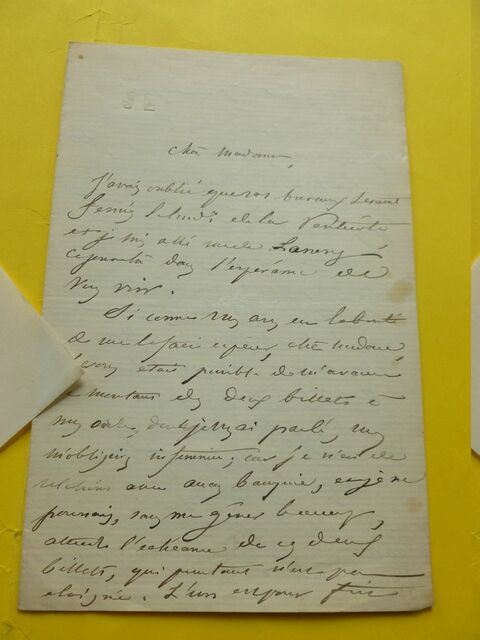 Chère Madame,
J'avais oublié que vos bureaux seraient
fermés le lundi de la Pentecôte
et je suis allé
ce jour là dans l'espérance de
vous voir.
Si comme vous avez eu la bonté
de me le faire espérer, chère madame,
il vous était possible de m'avancer
le montant des deux billets à
mon ordre, dont je vous ai parlé, vous
m'obligeriez infiniment; car je n'ai de
relations avec aucun banquier, et je ne
pourrais, sans me gêner beaucoup,
attendre l'échéance de ces deux
billets, qui pourtant n'est pas
éloignée. L'un est pour fin